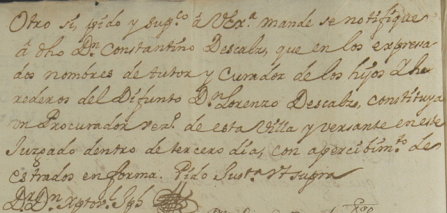 Otro si, pido y sup.co á V Ex.a mande se notifique
á dho D.n Constantino Descals, que en los expresa
dos nombres de tutor y Curador de los hijos y he
rederos del Difunto D.n Lorenzo Descals, constituya
un Procurador vez.o de esta Villa y versante en este
Juzgado dentro de tercero dia, con apercibim.to de
estrados en forma. Pido Just.a Vt supra